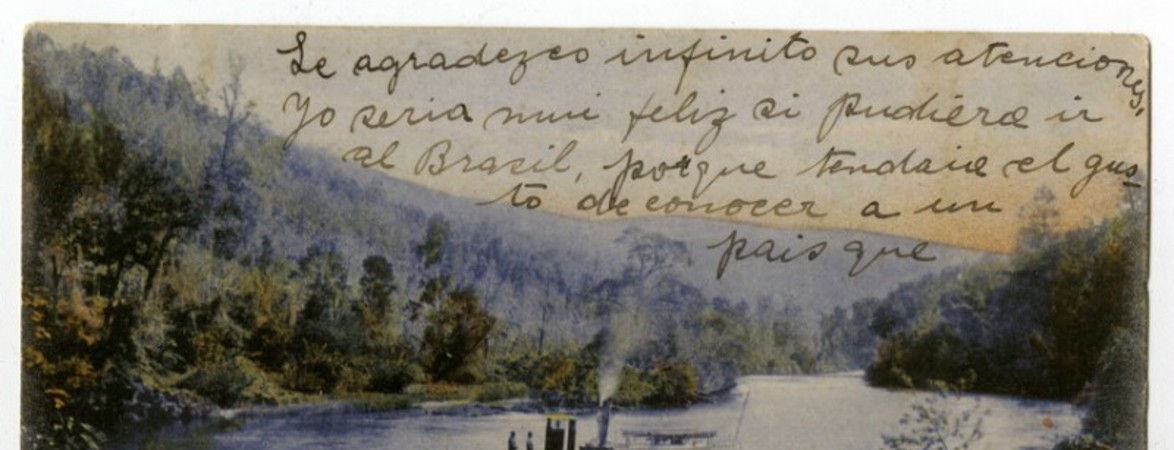 Le agradezco infinito sus atenciones,
Yo seria mui feliz si pudiera ir
al Brasil, porque tendaia el gus-
to de conocer a un
pais que